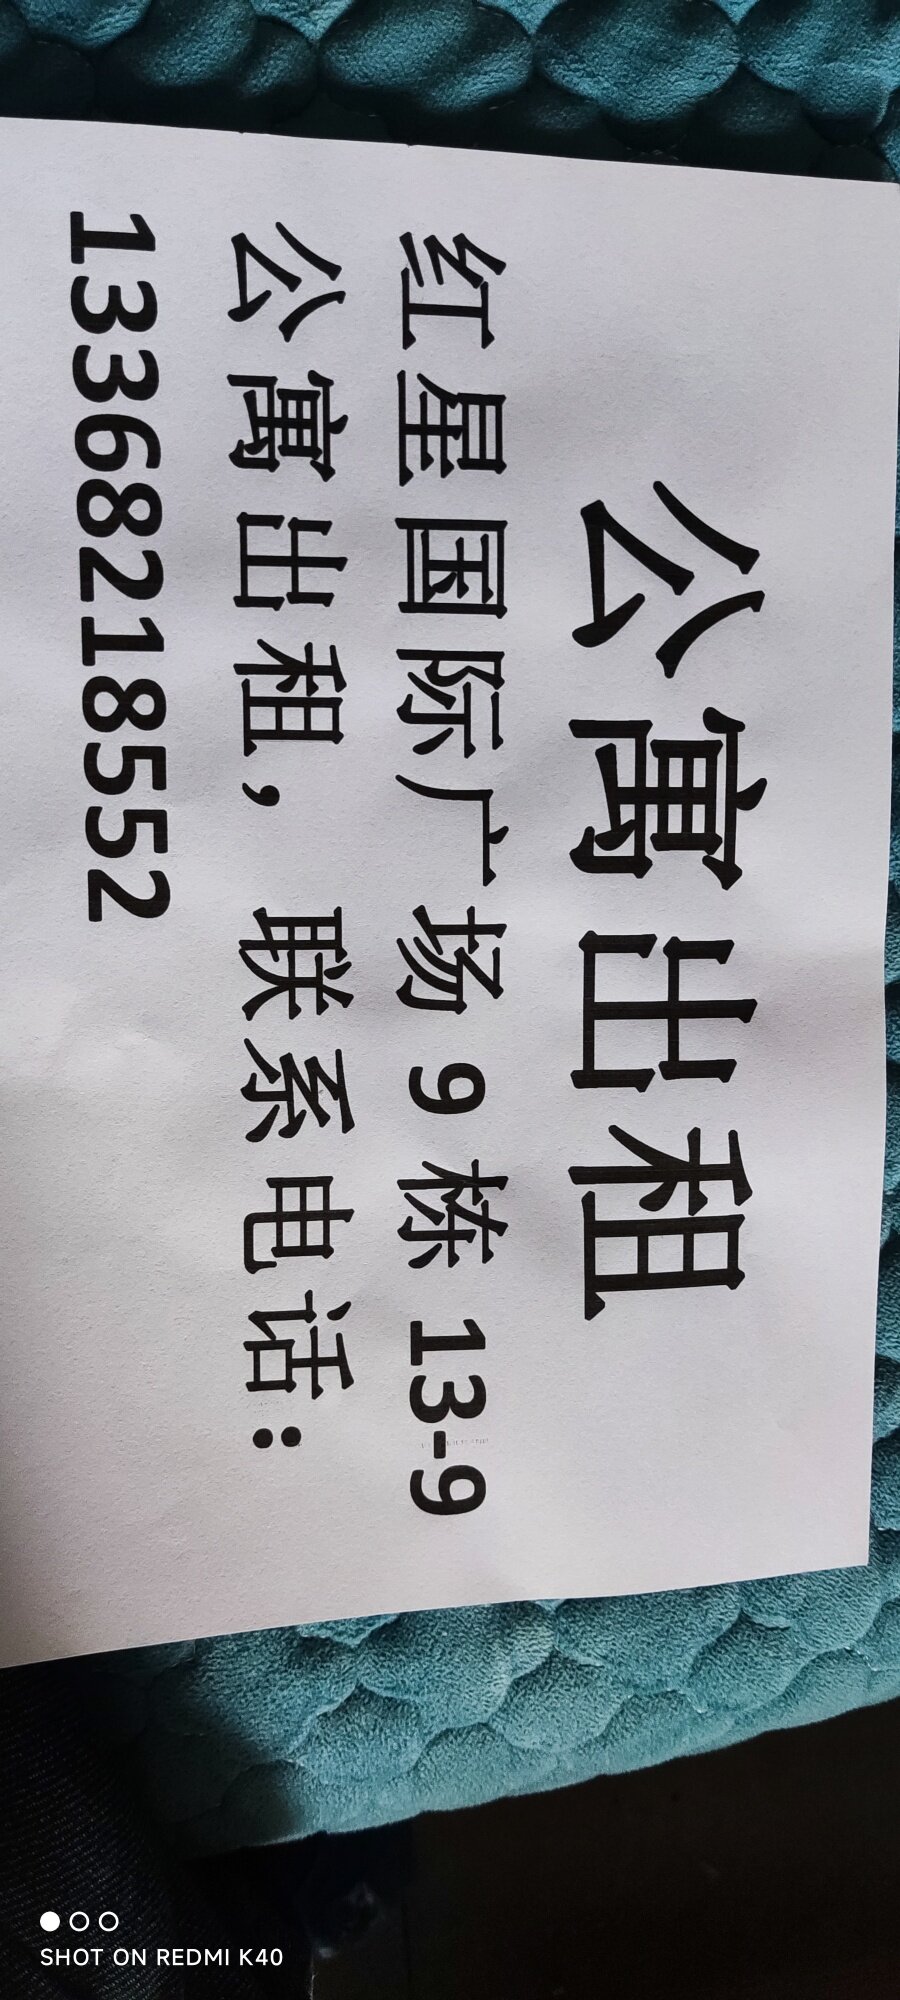 公寓出租
红星国际广场 9 栋 13-9
公寓出租，联系电话：
13368218552
SHOT ON REDMI K40